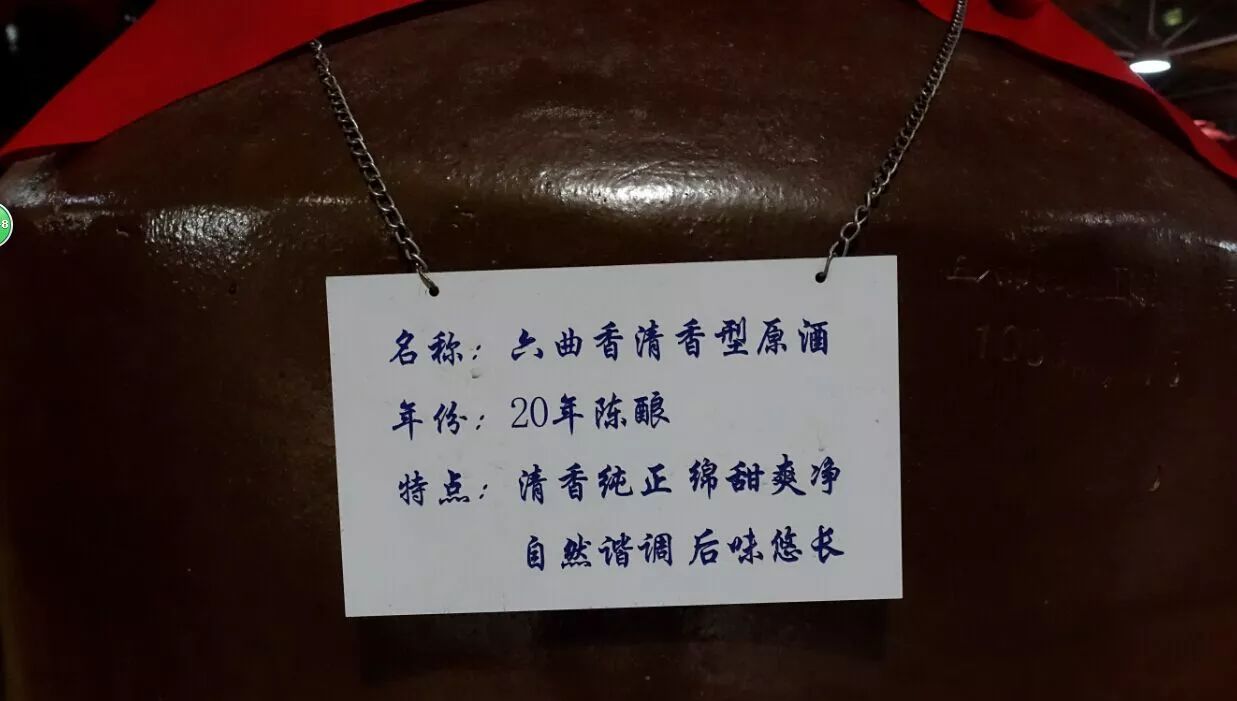 名称：六曲香清香型原酒
年份：20年陈酿
特点：清香纯正 绵甜爽净
自然谐调 后味悠长